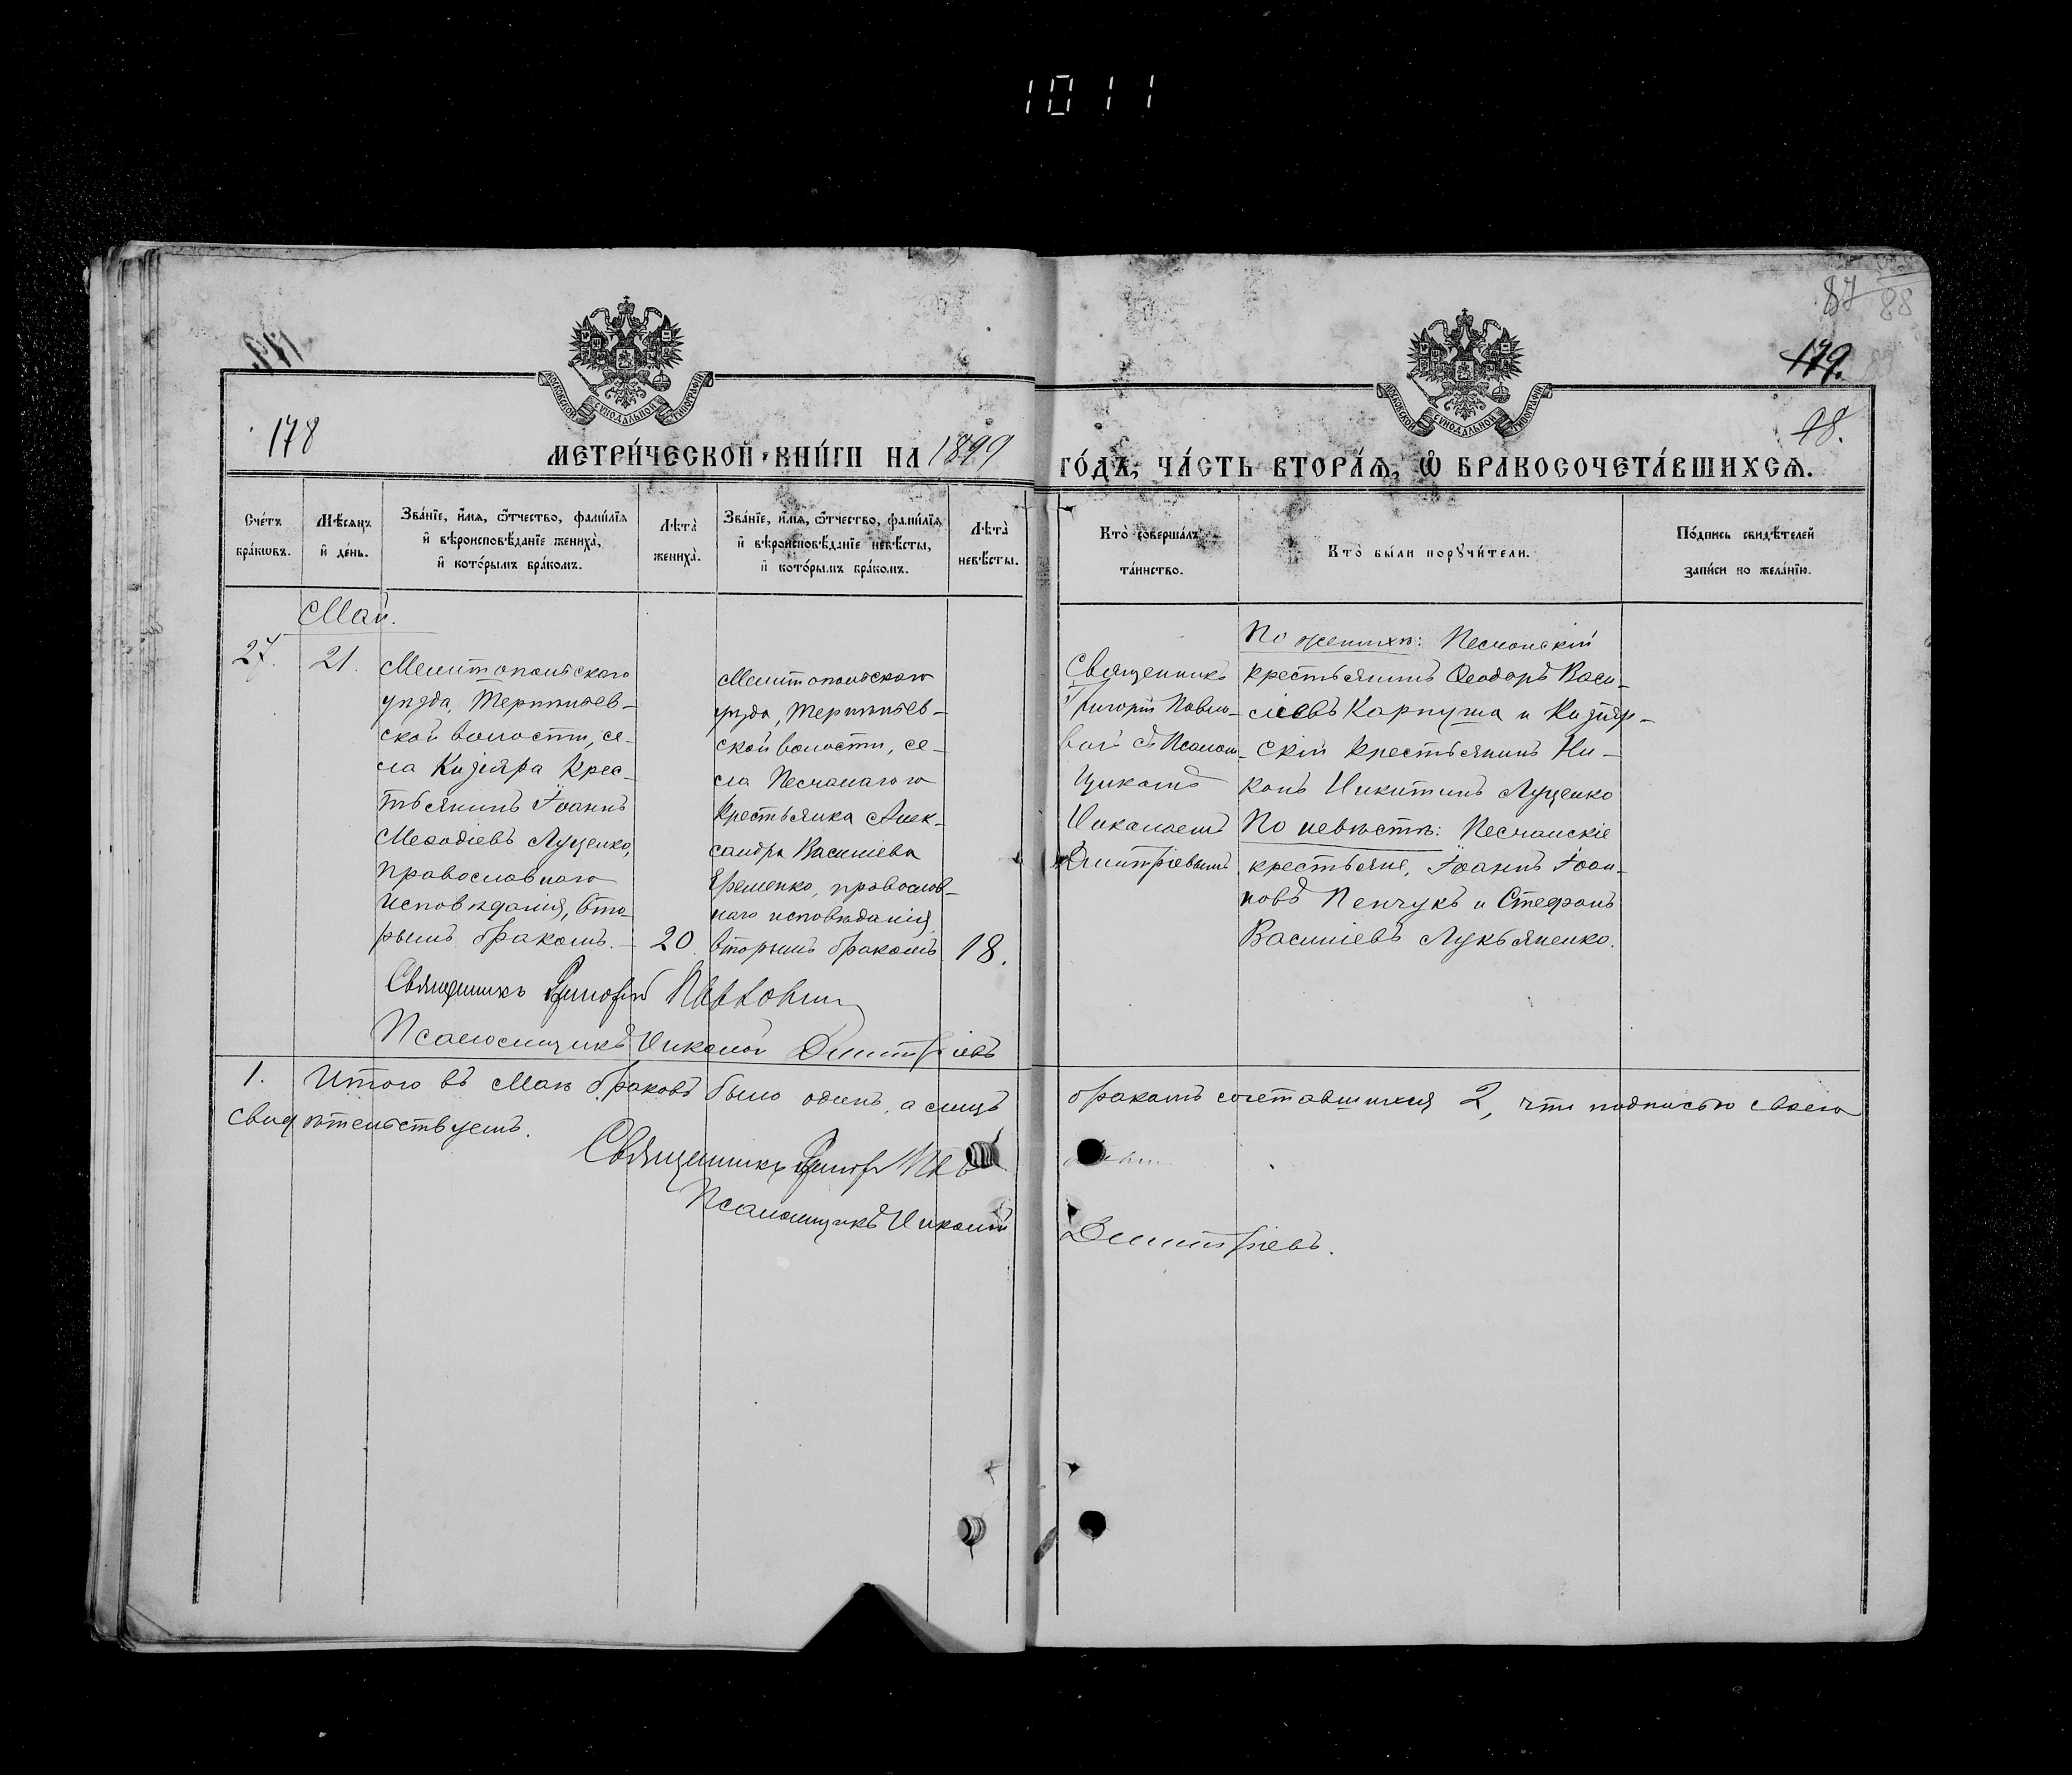 1011
87 88
179.
178
18.
МЕТРИ́ЧЕСКОЙ КНИ́ГИ НА 1899 ГО́ДЪ, ЧА́СТЬ ВТОРА́Ѧ, Ѡ҆ БРАКОСОЧЕТА́ВШИХСѦ.
МОСКОВСКОЙ СѴНОДАЛЬНОЙ ТИПОГРАФІИ
МОСКОВСКОЙ СѴНОДАЛЬНОЙ ТИПОГРАФІИ
Сче́тъ бра́кѡвъ.
Мѣ́сѧцъ и҆ де́нь.
Зва́нїе, и҆́мѧ, ѻ҆́тчество, фами́лїѧ
и҆ вѣроисповѣ́данїе жениха̀,
и҆ кото́рымъ бра́комъ.
Лѣ́та̀ жениха̀.
Зва́нїе, и҆́мѧ, ѻ҆́тчество, фами́лїѧ
и҆ вѣроисповѣ́данїе невѣ́сты,
и҆ кото́рымъ бра́комъ.
Лѣ́та̀ невѣ́сты.
Кто̀ соверша́лъ та́инство.
Кто̀ бы́ли порꙋчи́тели.
По́дпись свидѣ́телей
за́писи по жела́нїю.
Май.
27.
21.
Мелитопольскаго
уѣзда, Терпѣніев-
ской волости, се-
ла Кизіяра крес-
тьянинъ Іоаннъ
Меѳодіевъ Луценко,
православнаго
исповѣданія, вто-
рымъ бракомъ. -
20
Мелитопольскаго
уѣзда, Терпѣніев-
ской волости, се-
ла Песчанаго
крестьянка Алек-
сандра Василіева
Еременко, православ-
наго исповѣданія,
вторымъ бракомъ
18.
Священникъ
Григорій Павло-
вый съ Псалом-
щикомъ
Николаемъ
Димитріевымъ
По женихѣ: Песчанскій
крестьянинъ Ѳеодоръ Васи-
ліевъ Карпуша и Кизіяр-
скій крестьянинъ Ни-
конъ Никитинъ Луценко
По невѣстѣ: Песчанскіе
крестьяне, Іоаннъ Іоан-
новъ Пенчукъ и Стефанъ
Василіевъ Лукьяненко.
Священникъ Григорій
Псаломщикъ Николай Димитріевъ
1. Итого въ Маѣ браковъ было одинъ, а лицъ бракомъ сочетавшихся 2, что подписью своею
свидѣтельствуемъ.
Священникъ Григор
Псаломщикъ Николай Димитріевъ.